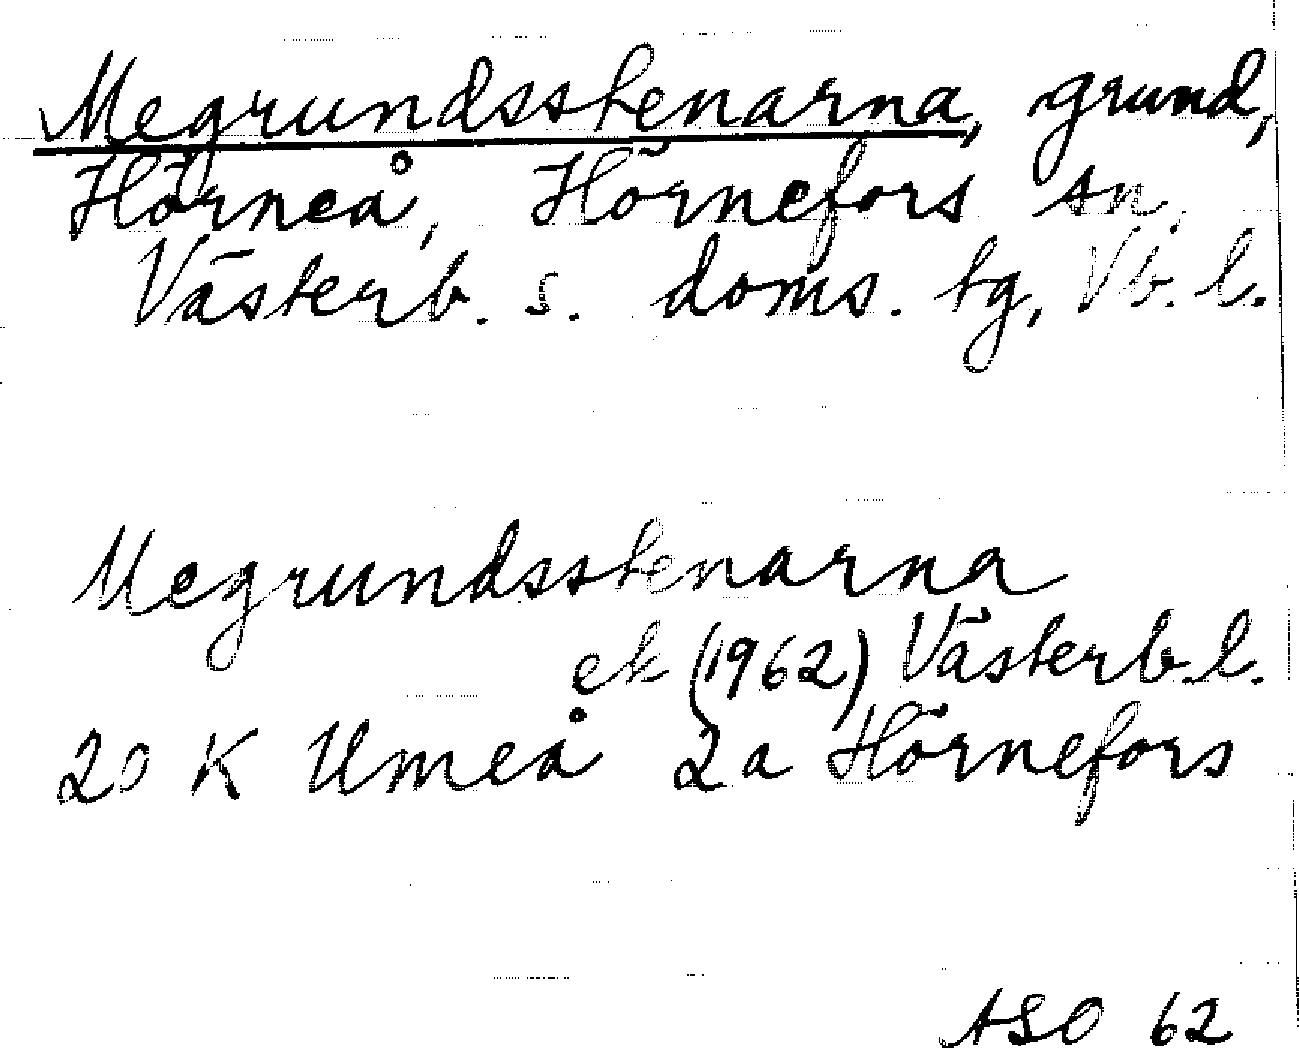 Megrundsstenarna, grund,
Hörneå, Hörnefors sn,
Västerb. s. doms. tg, Vb. l.
Megrundsstenarna
ek (1962) Västerb.l.
20 K Umeå 2a Hörnefors
ASO 62